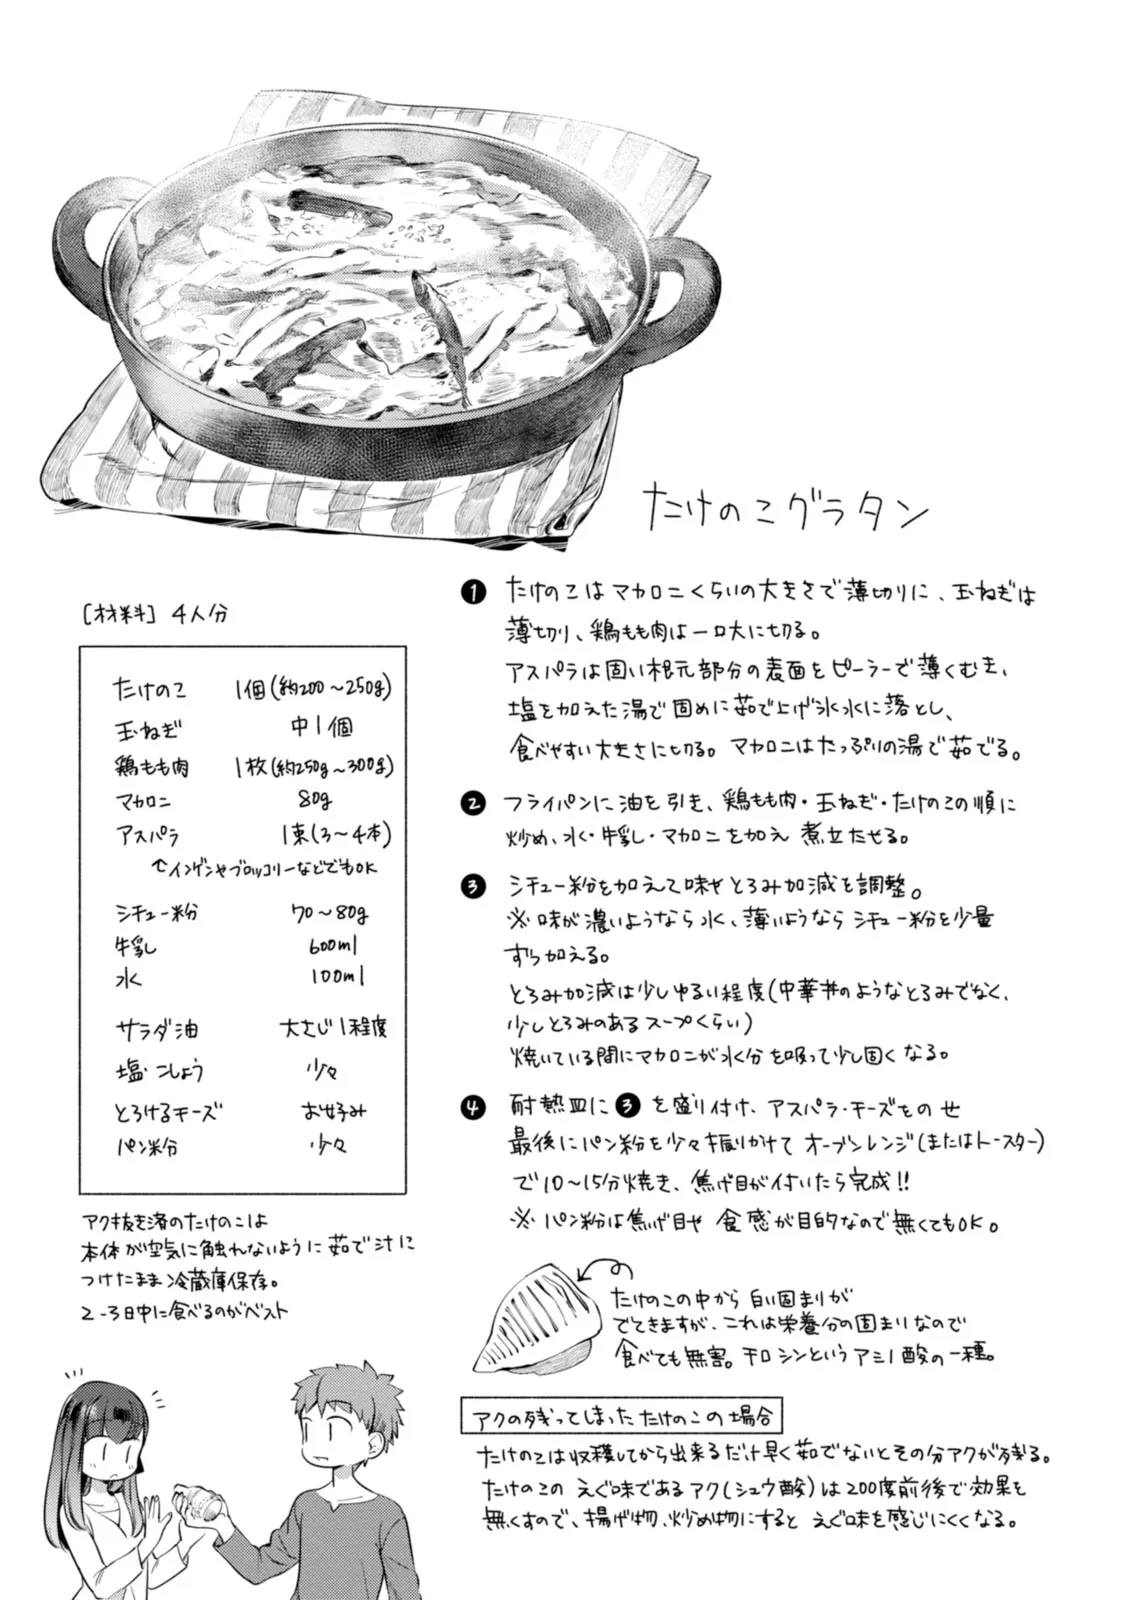 たけのこグラタン
[材料] 4人分
たけのこ 1個(約200～250g)
玉ねぎ 中1個
鶏もも肉 1枚(約250g～300g)
マカロニ 80g
アスパラ 1束(3～4本)
↑インゲンやブロッコリーなどでもOK
シチュー粉 70～80g
牛乳 600ml
水 100ml
サラダ油 大さじ1程度
塩・こしょう 少々
とろけるチーズ お好み
パン粉 少々
アク抜き済のたけのこは
本体が空気に触れないように茹で汁に
つけたまま冷蔵庫保存。
2-3日中に食べるのがベスト
❶ たけのこはマカロニくらいの大きさで薄切りに、玉ねぎは
薄切り、鶏もも肉は一口大に切る。
アスパラは固い根元部分の表面をピーラーで薄くむき、
塩を加えた湯で固めに茹で上げ氷水に落とし、
食べやすい大きさに切る。マカロニはたっぷりの湯で茹でる。
❷ フライパンに油を引き、鶏もも肉・玉ねぎ・たけのこの順に
炒め、水・牛乳・マカロニを加え煮立たせる。
❸ シチュー粉を加えて味やとろみ加減を調整。
※味が濃いようなら水、薄いようならシチュー粉を少量
ずつ加える。
とろみ加減は少しゆるい程度(中華丼のようなとろみでなく、
少しとろみのあるスープくらい)
焼いている間にマカロニが水分を吸って少し固くなる。
❹ 耐熱皿に❸を盛り付け、アスパラ・チーズをのせ
最後にパン粉を少々振りかけてオーブンレンジ(またはトースター)
で10～15分焼き、焦げ目が付いたら完成!!
※パン粉は焦げ目や食感が目的なので無くてもOK。
たけのこの中から白い固まりが
でてきますが、これは栄養分の固まりなので
食べても無害。チロシンというアミノ酸の一種。
アクの残ってしまったたけのこの場合
たけのこは収穫してから出来るだけ早く茹でないとその分アクが残る。
たけのこのえぐ味であるアク(シュウ酸)は200度前後で効果を
無くすので、揚げ物、炒め物にするとえぐ味を感じにくくなる。